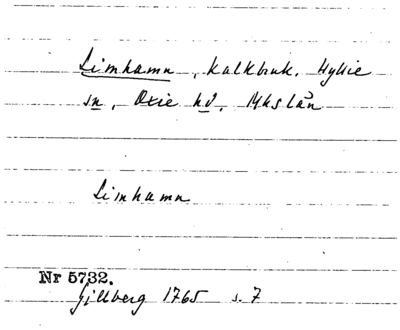 Limhamn, kalkbruk. Hyllie
sn, Oxie hd, Mhslän
Limhamn
Nr 5732.
Gillberg 1765 s. 7